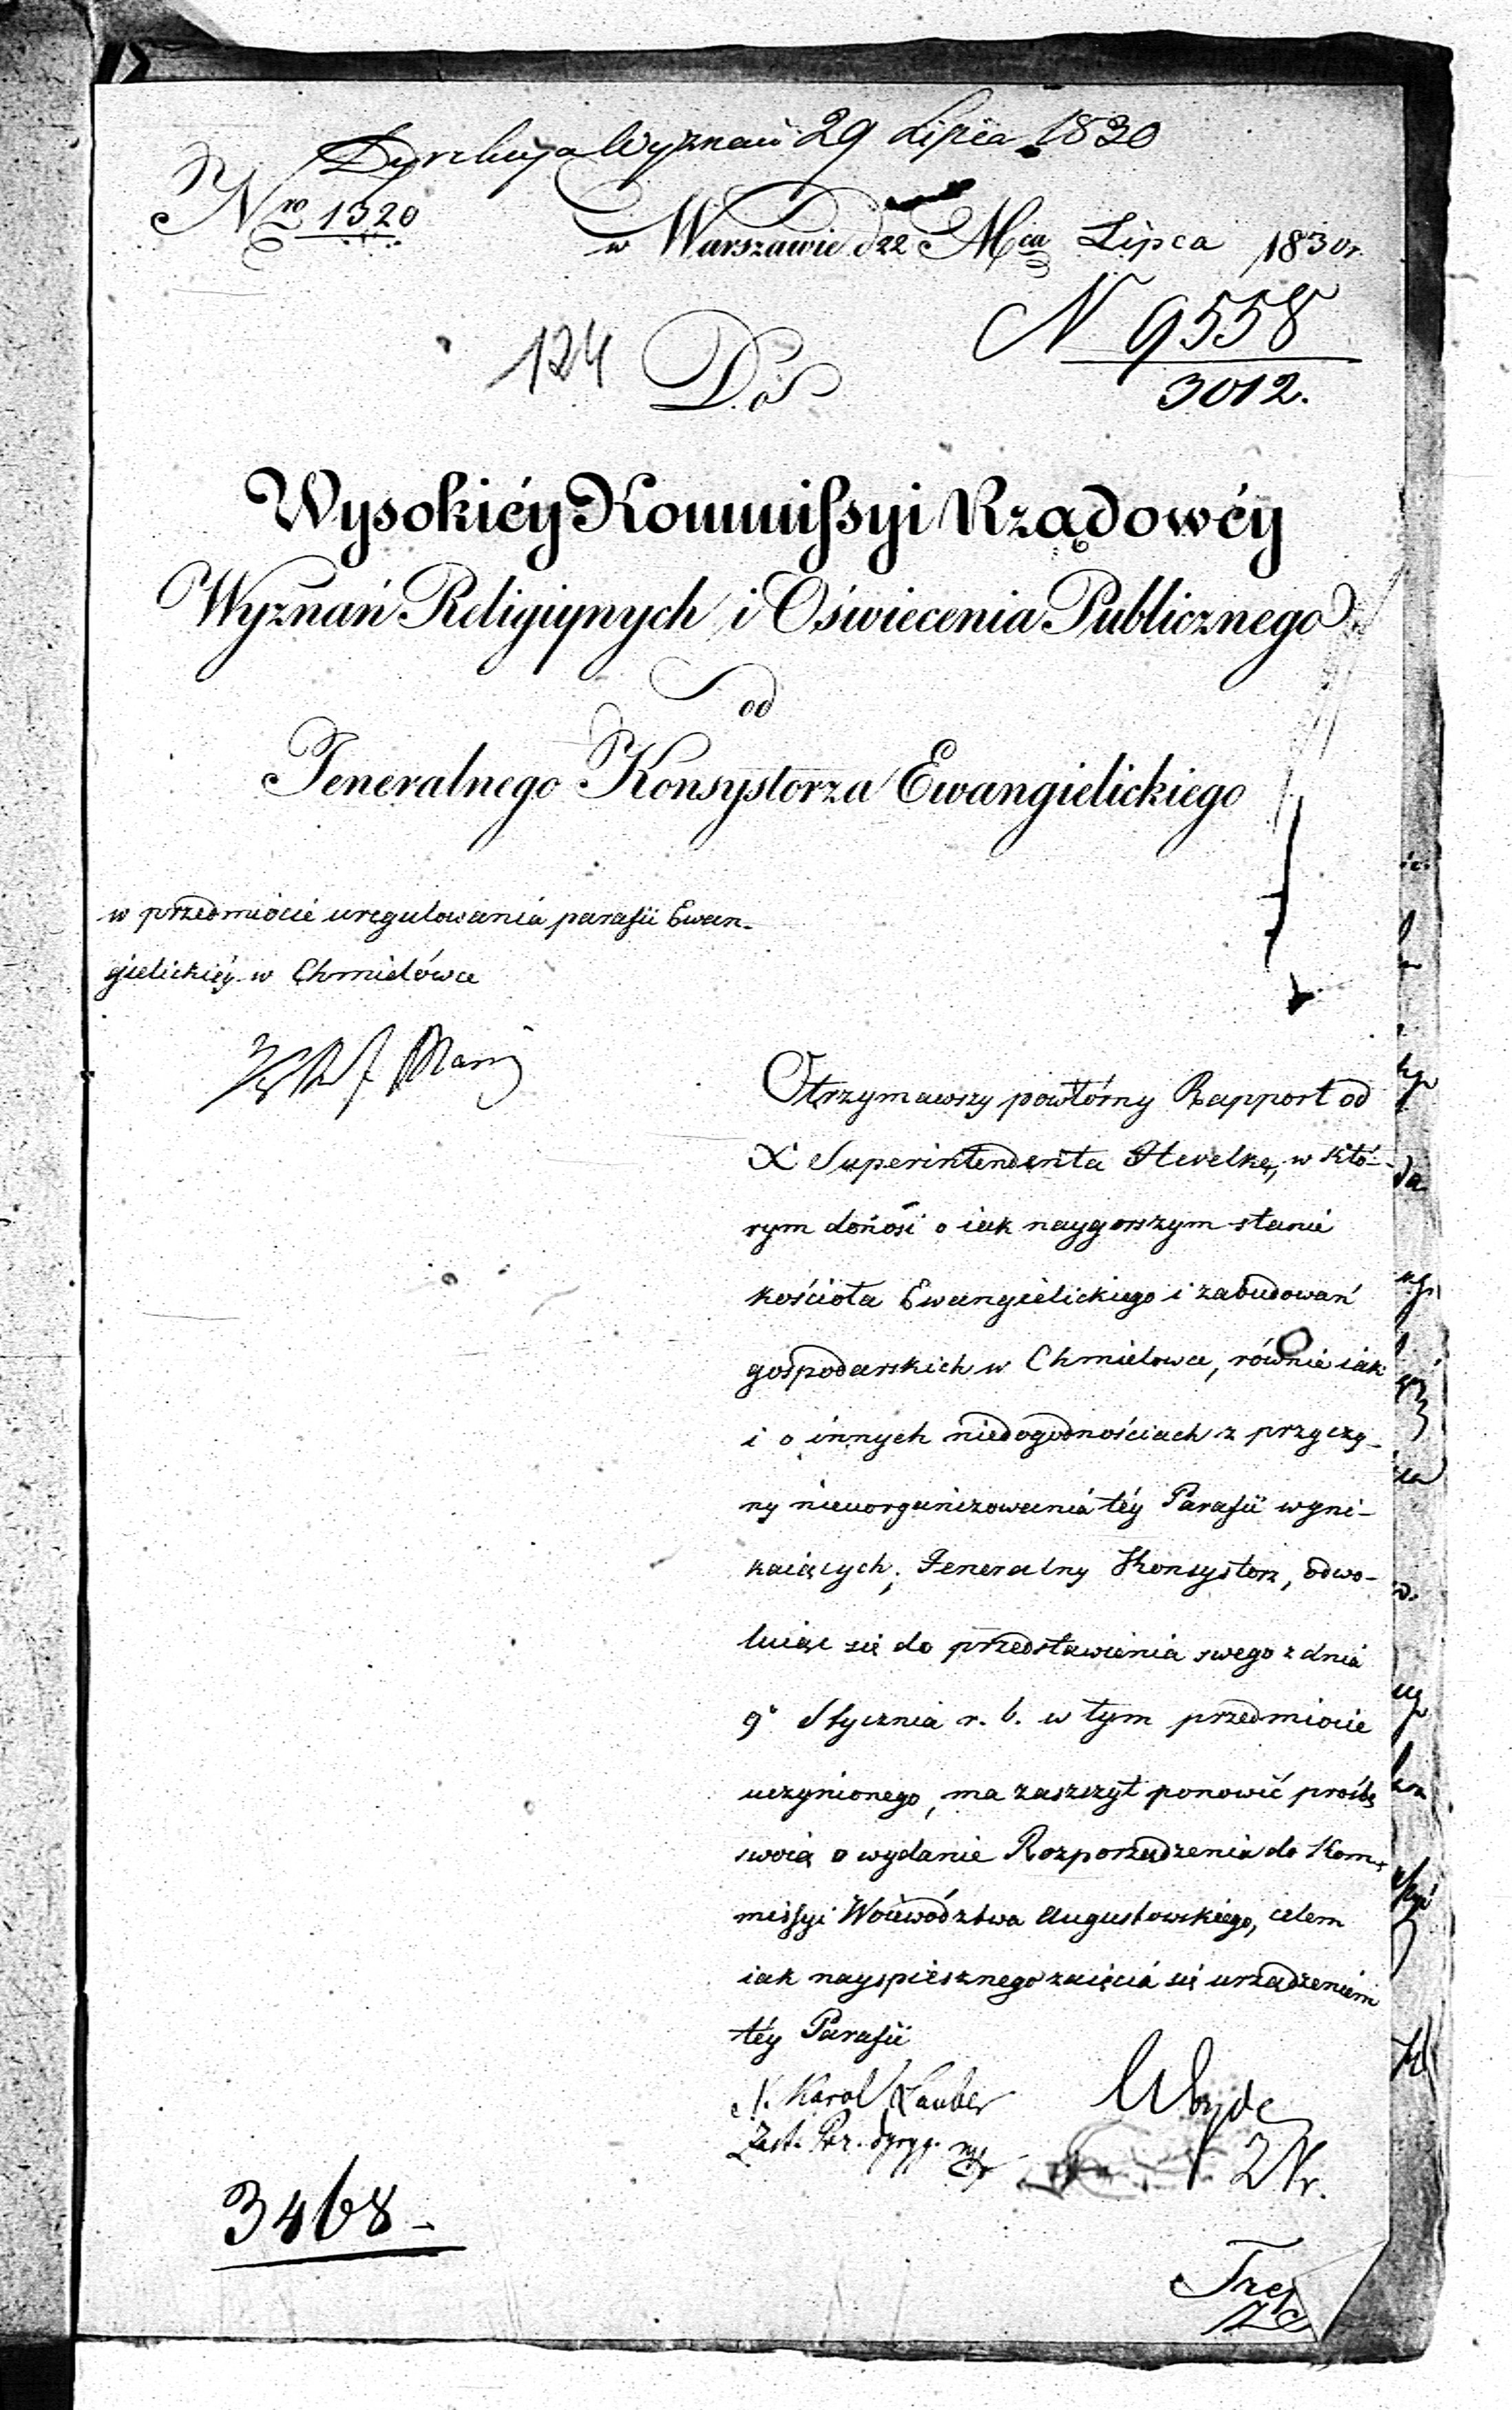 Dyrekcya Wyznań 29 Lipca 1830
Nro 1320
w Warszawie d 22 Mca Lipca 1830r.
N 9558
3012.
124
Do
Wysokiéy Kommissyi Rządowéy
Wyznań Religiynych i Oświecenia Publicznego
od
Jeneralnego Konsystorza Ewangielickiego
w przedmiocie uregulowania parafii Ewan-
gielickiéy w Chmielówce
Otrzymawszy powtórny Rapport od
X Superintendenta Hevelke, w któ-
rym donosi o iak naygorszym stanie
kościoła Ewangielickiego i zabudowań
gospodarskich w Chmielowce, równie iak
i o innych niedogodnościach z przyczy-
ny nieuorganizowania téy Parafii wyni-
kaiących; Jeneralny Konsystorz, odwo-
łuiąc się do przedstawienia swego z dnia
9º Stycznia r. b. w tym przedmiocie
uczynionego, ma zaszczyt ponowić proźbę
swoią o wydanie Rozporządzenia do Kom-
missyi Woiewództwa Augustowskiego, celem
iak nayspiesznego zaięcia się urządzeniem
téy Parafii
X. Karol Lauber
Zast. Prez.
3468